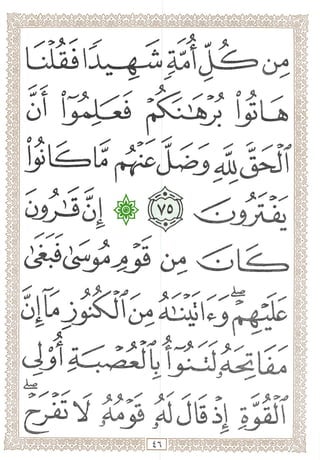 مِن كُلِّ أُمَّةٍ شَهِيدًا فَقُلْنَا
هَاتُوا۟ بُرْهَٰنَكُمْ فَعَلِمُوٓا۟ أَنَّ
ٱلْحَقَّ لِلَّهِ وَضَلَّ عَنْهُم مَّا كَانُوا۟
يَفْتَرُونَ ٧٥ إِنَّ قَٰرُونَ
كَانَ مِن قَوْمِ مُوسَىٰ فَبَغَىٰ
عَلَيْهِمْ ۖ وَءَاتَيْنَٰهُ مِنَ ٱلْكُنُوزِ مَآ إِنَّ
مَفَاتِحَهُۥ لَتَنُوٓأُ بِٱلْعُصْبَةِ أُو۟لِى
ٱلْقُوَّةِ إِذْ قَالَ لَهُۥ قَوْمُهُۥ لَا تَفْرَحْ ۖ
٤٦